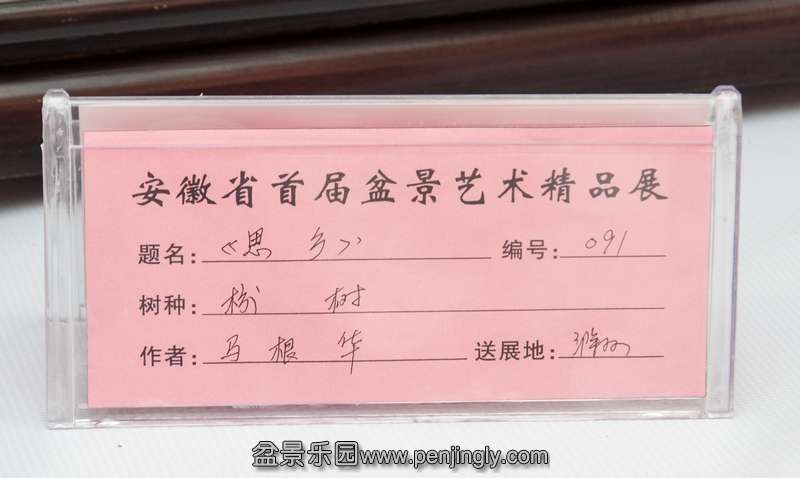 安徽省首届盆景艺术精品展
题名:《思乡》 编号: 091
树种: 榆树
作者: 马根华 送展地: 滁州
盆景乐园www.penjingly.com